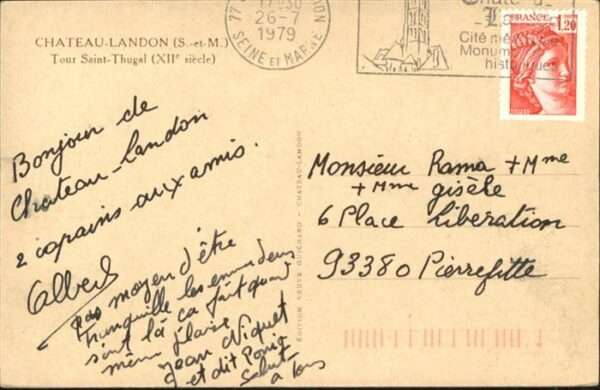 CHATEAU-LANDON (S.-et-M.)
Tour Saint-Thugal (XIIe siècle)
77
17-30
26-7
1979
SEINE ET MARNE
Cité
Monum
historiques
1,20
Bonjour de
Chateau-Landon
2 copains aux amis.
Albert
pas moyen d'être
tranquille les emmerdeurs
sont là ça fait quand
même plaisir
Jean Niquet
et dit
Salut
à tous
EDITION VEUVE GUÉRARD - CHATEAU-LANDON
Monsieur Rama + Mme
+ Mme gisèle
6 Place Libération
93380 Pierrefitte